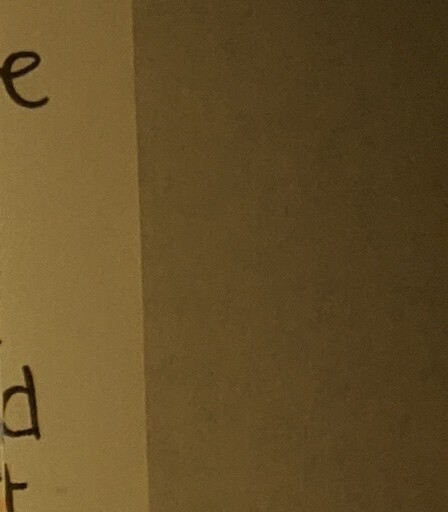 e
d
t